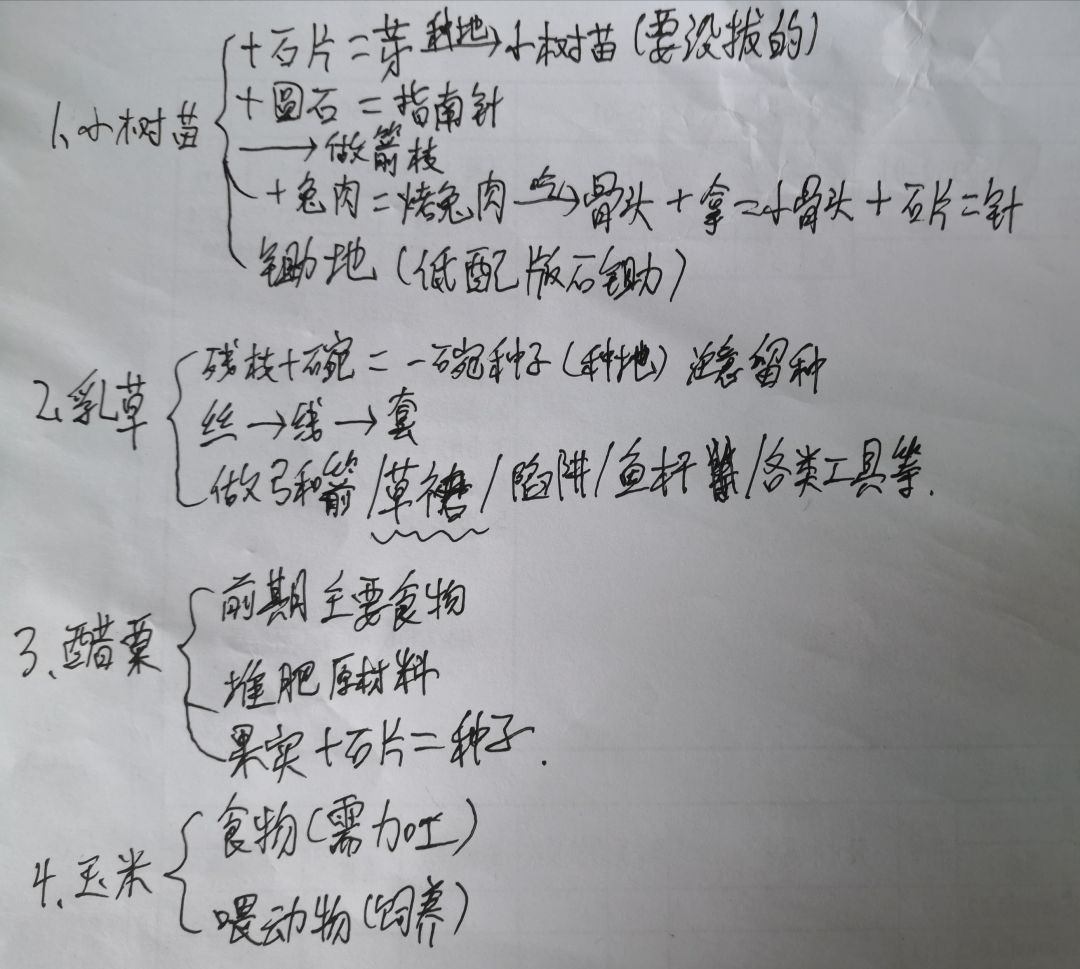 1、小树苗
+石片=芽 种地→小树苗(要没拔的)
+圆石=指南针
→做箭枝
+兔肉=烤兔肉 吃→骨头+拿=小骨头+石片=针
锄地(低配版石锄)
2、乳草
残枝+碗=一碗种子(种地) 注意留种
丝→线→套
做弓和箭/草裙/陷阱/鱼杆/各类工具等.
3、醋栗
前期主要食物
堆肥原材料
果实+石片=种子.
4、玉米
食物(需加工)
喂动物(饲养)